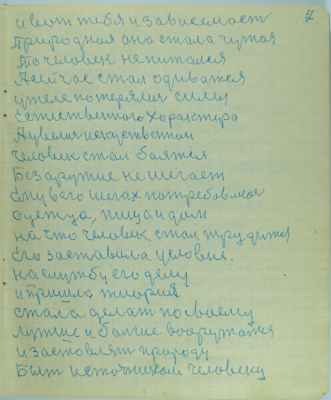 7
и вот тебя и зависемаст
природная она стала чужая
То человек непитался
А сейчас стал одиватся
ужеле потерялия силы
Естественного характера
А увелия искуственом
человек стал боятся
Без аружие не шегает
ему в его шегах потребовлося
одежда, пища и дом
на что человек стал трудится
его заставила условие.
на службу его делу
и пришла теория
стала делат по своему
лутше и болше вооружатся
и застовлят природу
Быт источником человеку